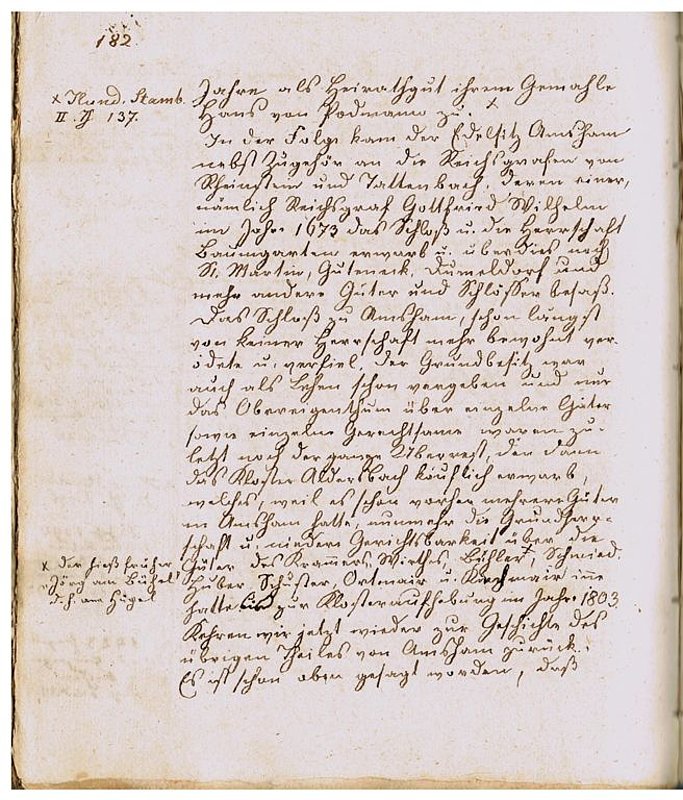 182
x Hund. Stamb.
II. S 137.
Jahre als Heirathgut ihrem Gemahle
Hans von Podmann zu. x
In der Folge kam der Edelsitz Amsham
nebst Zugehör an die Reichsgrafen von
Rheinstein und Tattenbach, deren einer,
nämlich Reichsgraf Gottfried Wilhelm
im Jahre 1673 das Schloß u. die Herrschaft
Baumgarten erwarb u. überdies noch
St. Martin, Guteneck, Dumeldorf und
mehr andere Güter und Schlösser besaß.
Das Schloß zu Amsham, schon längst
von keiner Herrschaft mehr bewohnt ver-
ödete u. verfiel, der Grundbesitz war
auch als Lehen schon vergeben und nur
das Obereigenthum über einzelne Güter
sowie einzelne Gerechtsame waren zu-
letzt noch der ganze Überrest, den dann
das Kloster Aldersbach käuflich erwarb,
welches, weil es schon vorher mehrere Güter
in Amsham hatte, nunmehr die Grundherr-
schaft u. niedere Gerichtsbarkeit über die
Güter des Kramers, Wirthes, Bühler x, Schmied,
Huber, Schuster, Ortmair u. Kirchmair inne
hatte bis zur Klosteraufhebung im Jahre 1803.
Kehren wir jetzt wieder zur Geschichte des
übrigen Theiles von Amsham zurück.
Es ist schon oben gesagt worden, daß
x der hieß früher
"Jörg am Bühel"
d. h. am Hügel